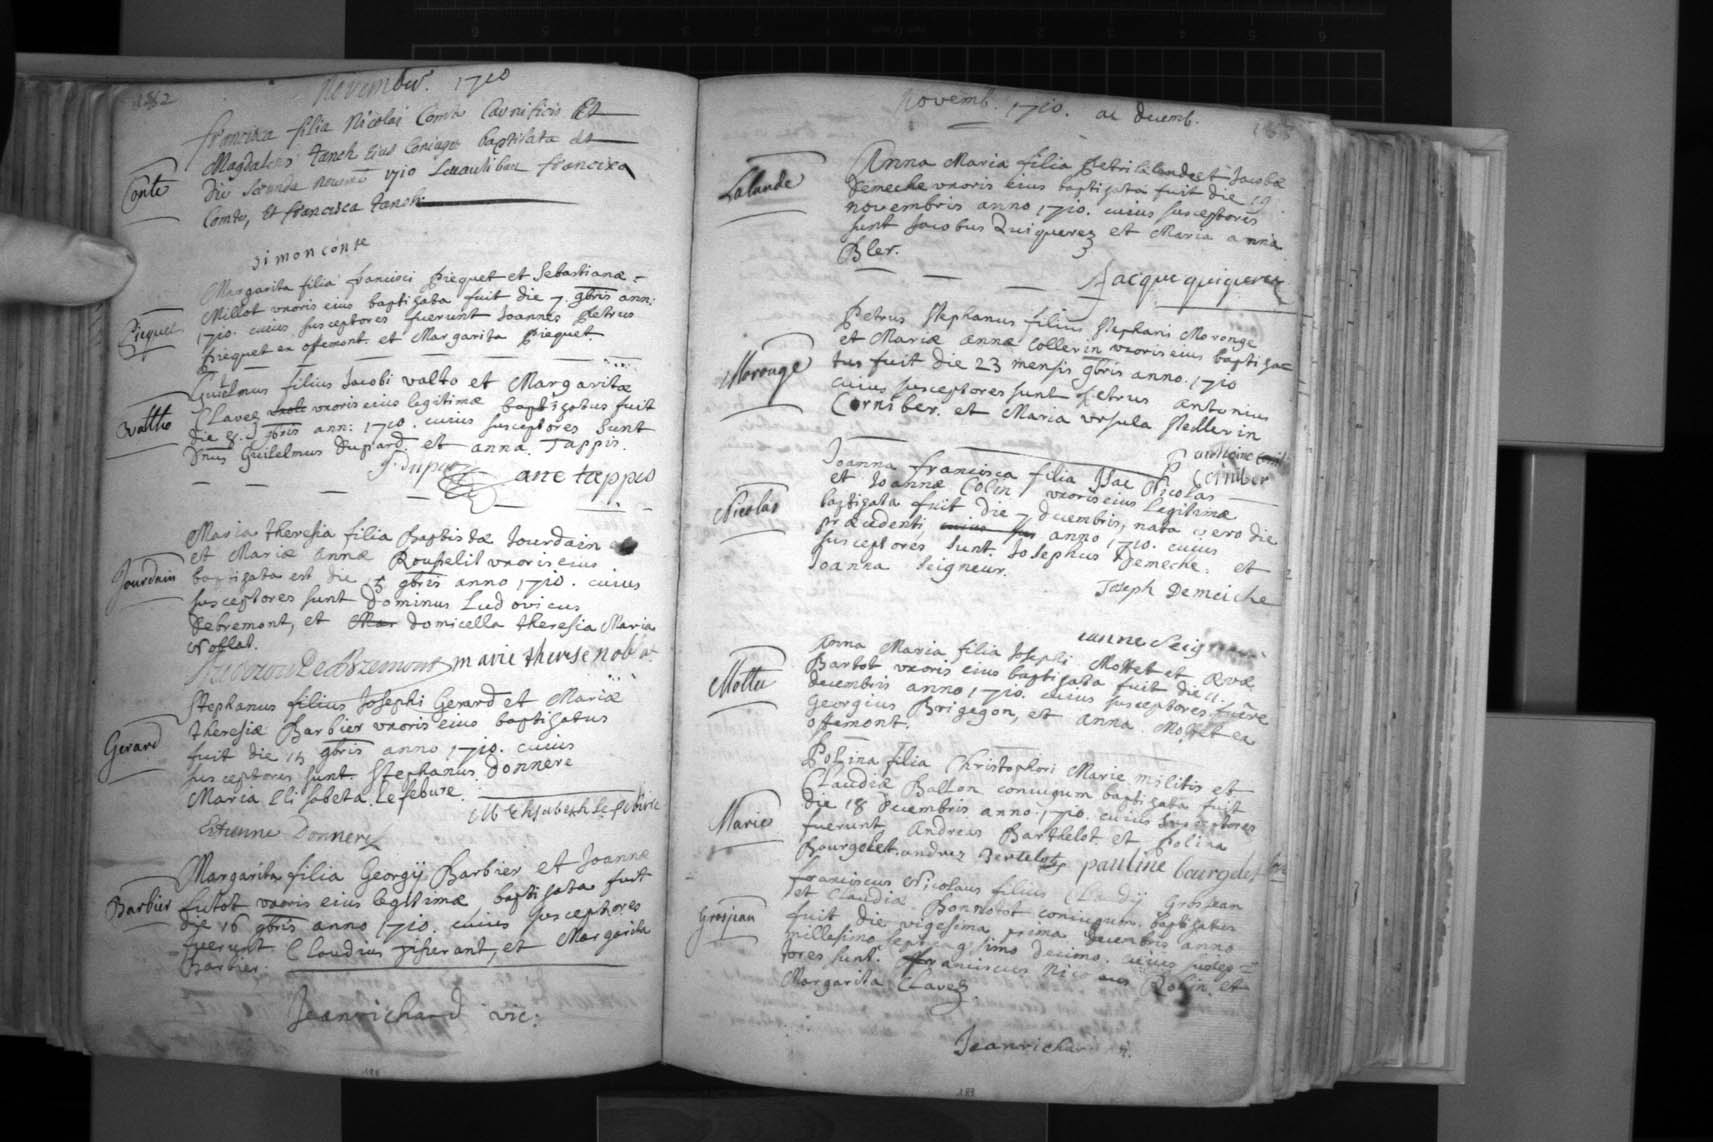 182
Novembr. 1710
francisca filia Nicolai Comte Carnificis Et
Magdalena Tanch Eius Coniugis baptisata est
Conte
Die Secunda 1710 Levantibus francisca
Comte, Et francisca Tanch.
simon conte
Margarita filia francisci Piequet et Sebastianæ
Millot uxoris eius baptizata fuit die 7. 9bris ann:
Piequet
1710. cuius susceptores fuerunt Joannes Petrus
Piequet ex offemont. et Margarita Piequet.
Guielmus filius Jacobi valto et Margaritæ
Clavez uxoris eius legitimæ baptizatus fuit
valtho
die 8. 9bris ann: 1710. cuius susceptores sunt
Dnus Guilelmus dupard et anna Tappis.
ane tappis
Maria theresia filia Baptistæ Jourdain
et Mariæ annæ uxoris eius
Jourdain
baptizata est die 9bris anno 1710. cuius
susceptores sunt dominus Ludovicus
debremont, et domicella theresia Maria
Noblat.
marie therese noblat
Stephanus filius Josephi Gerard et Mariæ
theresiæ Barbier uxoris eius baptizatus
Gerard
fuit die 15 9bris anno 1710. cuius
susceptores sunt Stephanus donnere
Maria Elisabeta Lefebure.
M Elisabeth Le febure
Etienne Donnere
Margarita filia Georgij Barbier et Joannæ
Barbier
futot uxoris eius legitimæ, baptizata fuit
die 16 9bris anno 1710. cuius susceptores
fuerunt Claudius et Margarita
Barbier.
Jeanrichard vic:
Novemb. 1710. ac decemb.
Anna Maria filia Petri lalande et Jacobæ
Lalande
Demeche uxoris eius baptizata fuit die 19
novembris anno 1710. cuius susceptores
sunt Jacobus Quiquerez et Maria anna
Bler.
Jacque quiquerez
Petrus Stephanus filius Stephani Moronge
et Mariæ annæ Collerin uxoris eius baptiza-
Moronge
tus fuit die 23 mensis 9bris anno 1710
cuius susceptores sunt Petrus antonius
Corniber. et Maria ursula Stedlerin
Joanna francisca filia Isac Nicolas
et Joannæ Colin uxoris eius legitimæ
Nicolas
baptizata fuit die 7 decembris, nata vero die
præcedenti anno 1710. cuius
susceptores sunt Josephus Demeche. et
Joanna Seigneur.
Joseph Demeiche
Anna Maria filia Josephi Mottet et Evæ
Bartot uxoris eius baptizata fuit die 11.
Mottet
decembris anno 1710. cuius susceptores fuere
Georgius Brigegon, et anna Mottet ex
offemont.
Polina filia Christophori Marie militis et
Claudiæ Ballon coniugum baptizata fuit
Marie
die 18 decembris anno 1710. cuius susceptores
fuerunt Andreas Barthelot et Polina
Bourgelet. andrez Bertelot pauline bourgdet
franciscus Nicolaus filius Claudij Grosjean
et Claudiæ Bonnotot coniugum. baptizatus
Grosjean
fuit die vigesima prima decembris anno
millesimo septuagesimo decimo. cuius suscep-
tores sunt. franciscus Nico aus Robin et
Margarita Clavez.
189